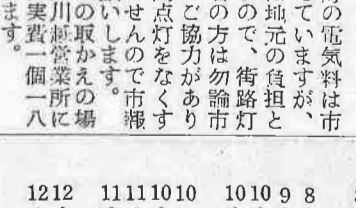 の電気料は市
ていますが、
地元の負担と
ので、街路灯
の方は勿論市
ご協力があり
点灯をなくす
せんので市報
いします。
の取かえの場
川営業所に
実費一個一八
ます。
1212 11111010 101098